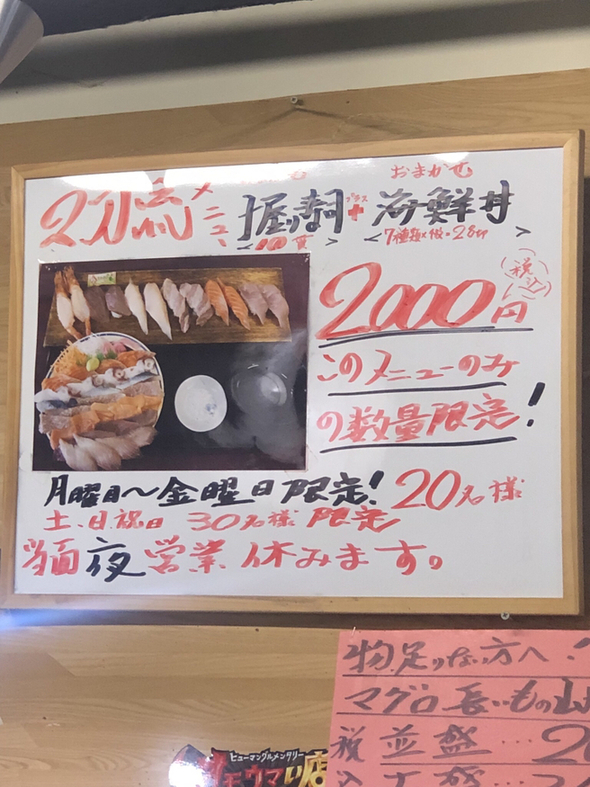 おまかせ
2刀流メニュー 握り寿司 プラス + 海鮮丼
＜7種類×4枚・28切＞
2000円 (税込)
このメニューのみ
の数量限定!
月曜日〜金曜日限定! 20名様
土、日、祝日 30名様 限定
当面夜営業休みます。
物足りない方へ!
マグロ 長いもの山
税 並盛…2
込 大盛…
ヒューマングルメンタリー
オモウマい店